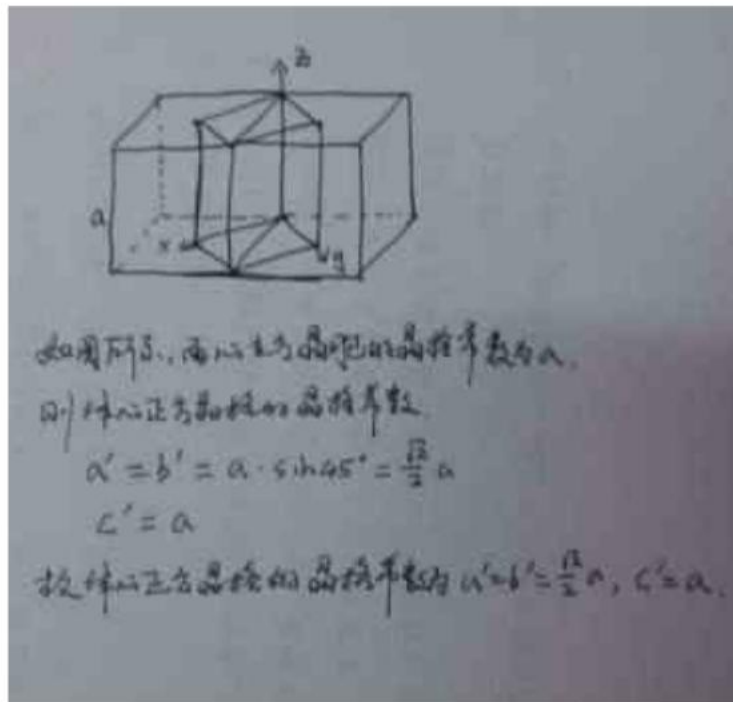 z
a
x
y
如图所示,面心立方晶胞的晶格常数为a.
则体心正方晶格的晶格常数
a′=b′=a·sin45°=\frac{√2}{2}a
c′=a
故体心正方晶格的晶格常数为a′=b′=\frac{√2}{2}a, c′=a.